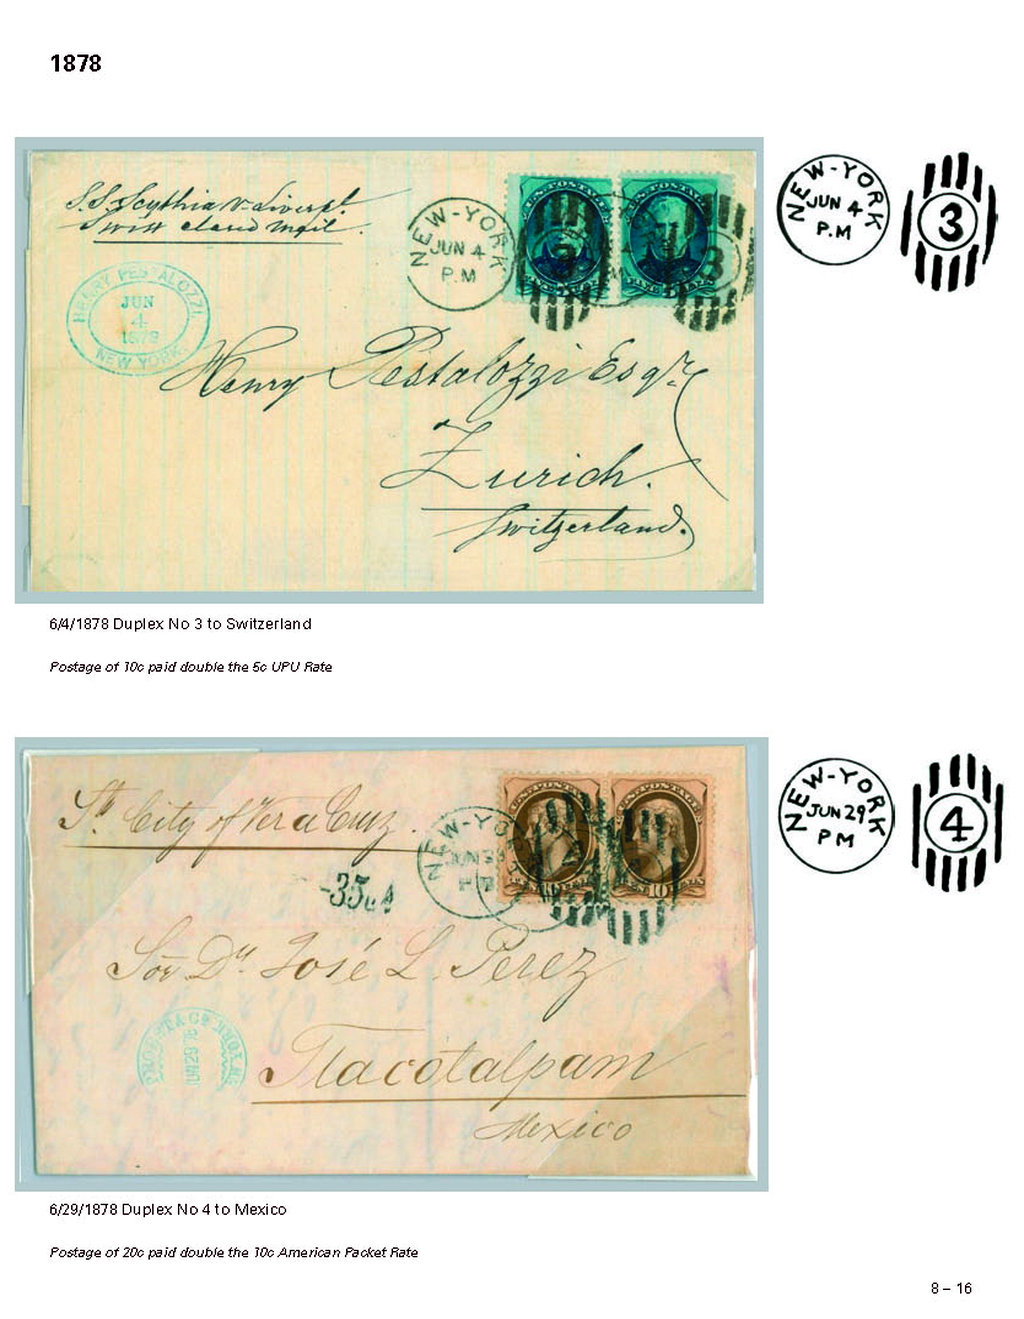 1878
S.S. Scythia v. Liverpl.
Swiss closed mail.
NEW-YORK
JUN 4
P.M
NEW-YORK
JUN 4
P.M
3
HENRY PESTALOZZI.
JUN
4
1878
NEW YORK.
Henry Pestalozzi Esqr.
Zurich.
Switzerland.
6/4/1878 Duplex No 3 to Switzerland
Postage of 10c paid double the 5c UPU Rate
St. City of Vera Cruz.
NEW-YORK
NEW-YORK
JUN 29
PM
4
10
35
Sor Dn José L. Perez
Tlacotalpam
Mexico
JUN 29 78
6/29/1878 Duplex No 4 to Mexico
Postage of 20c paid double the 10c American Packet Rate
8 – 16